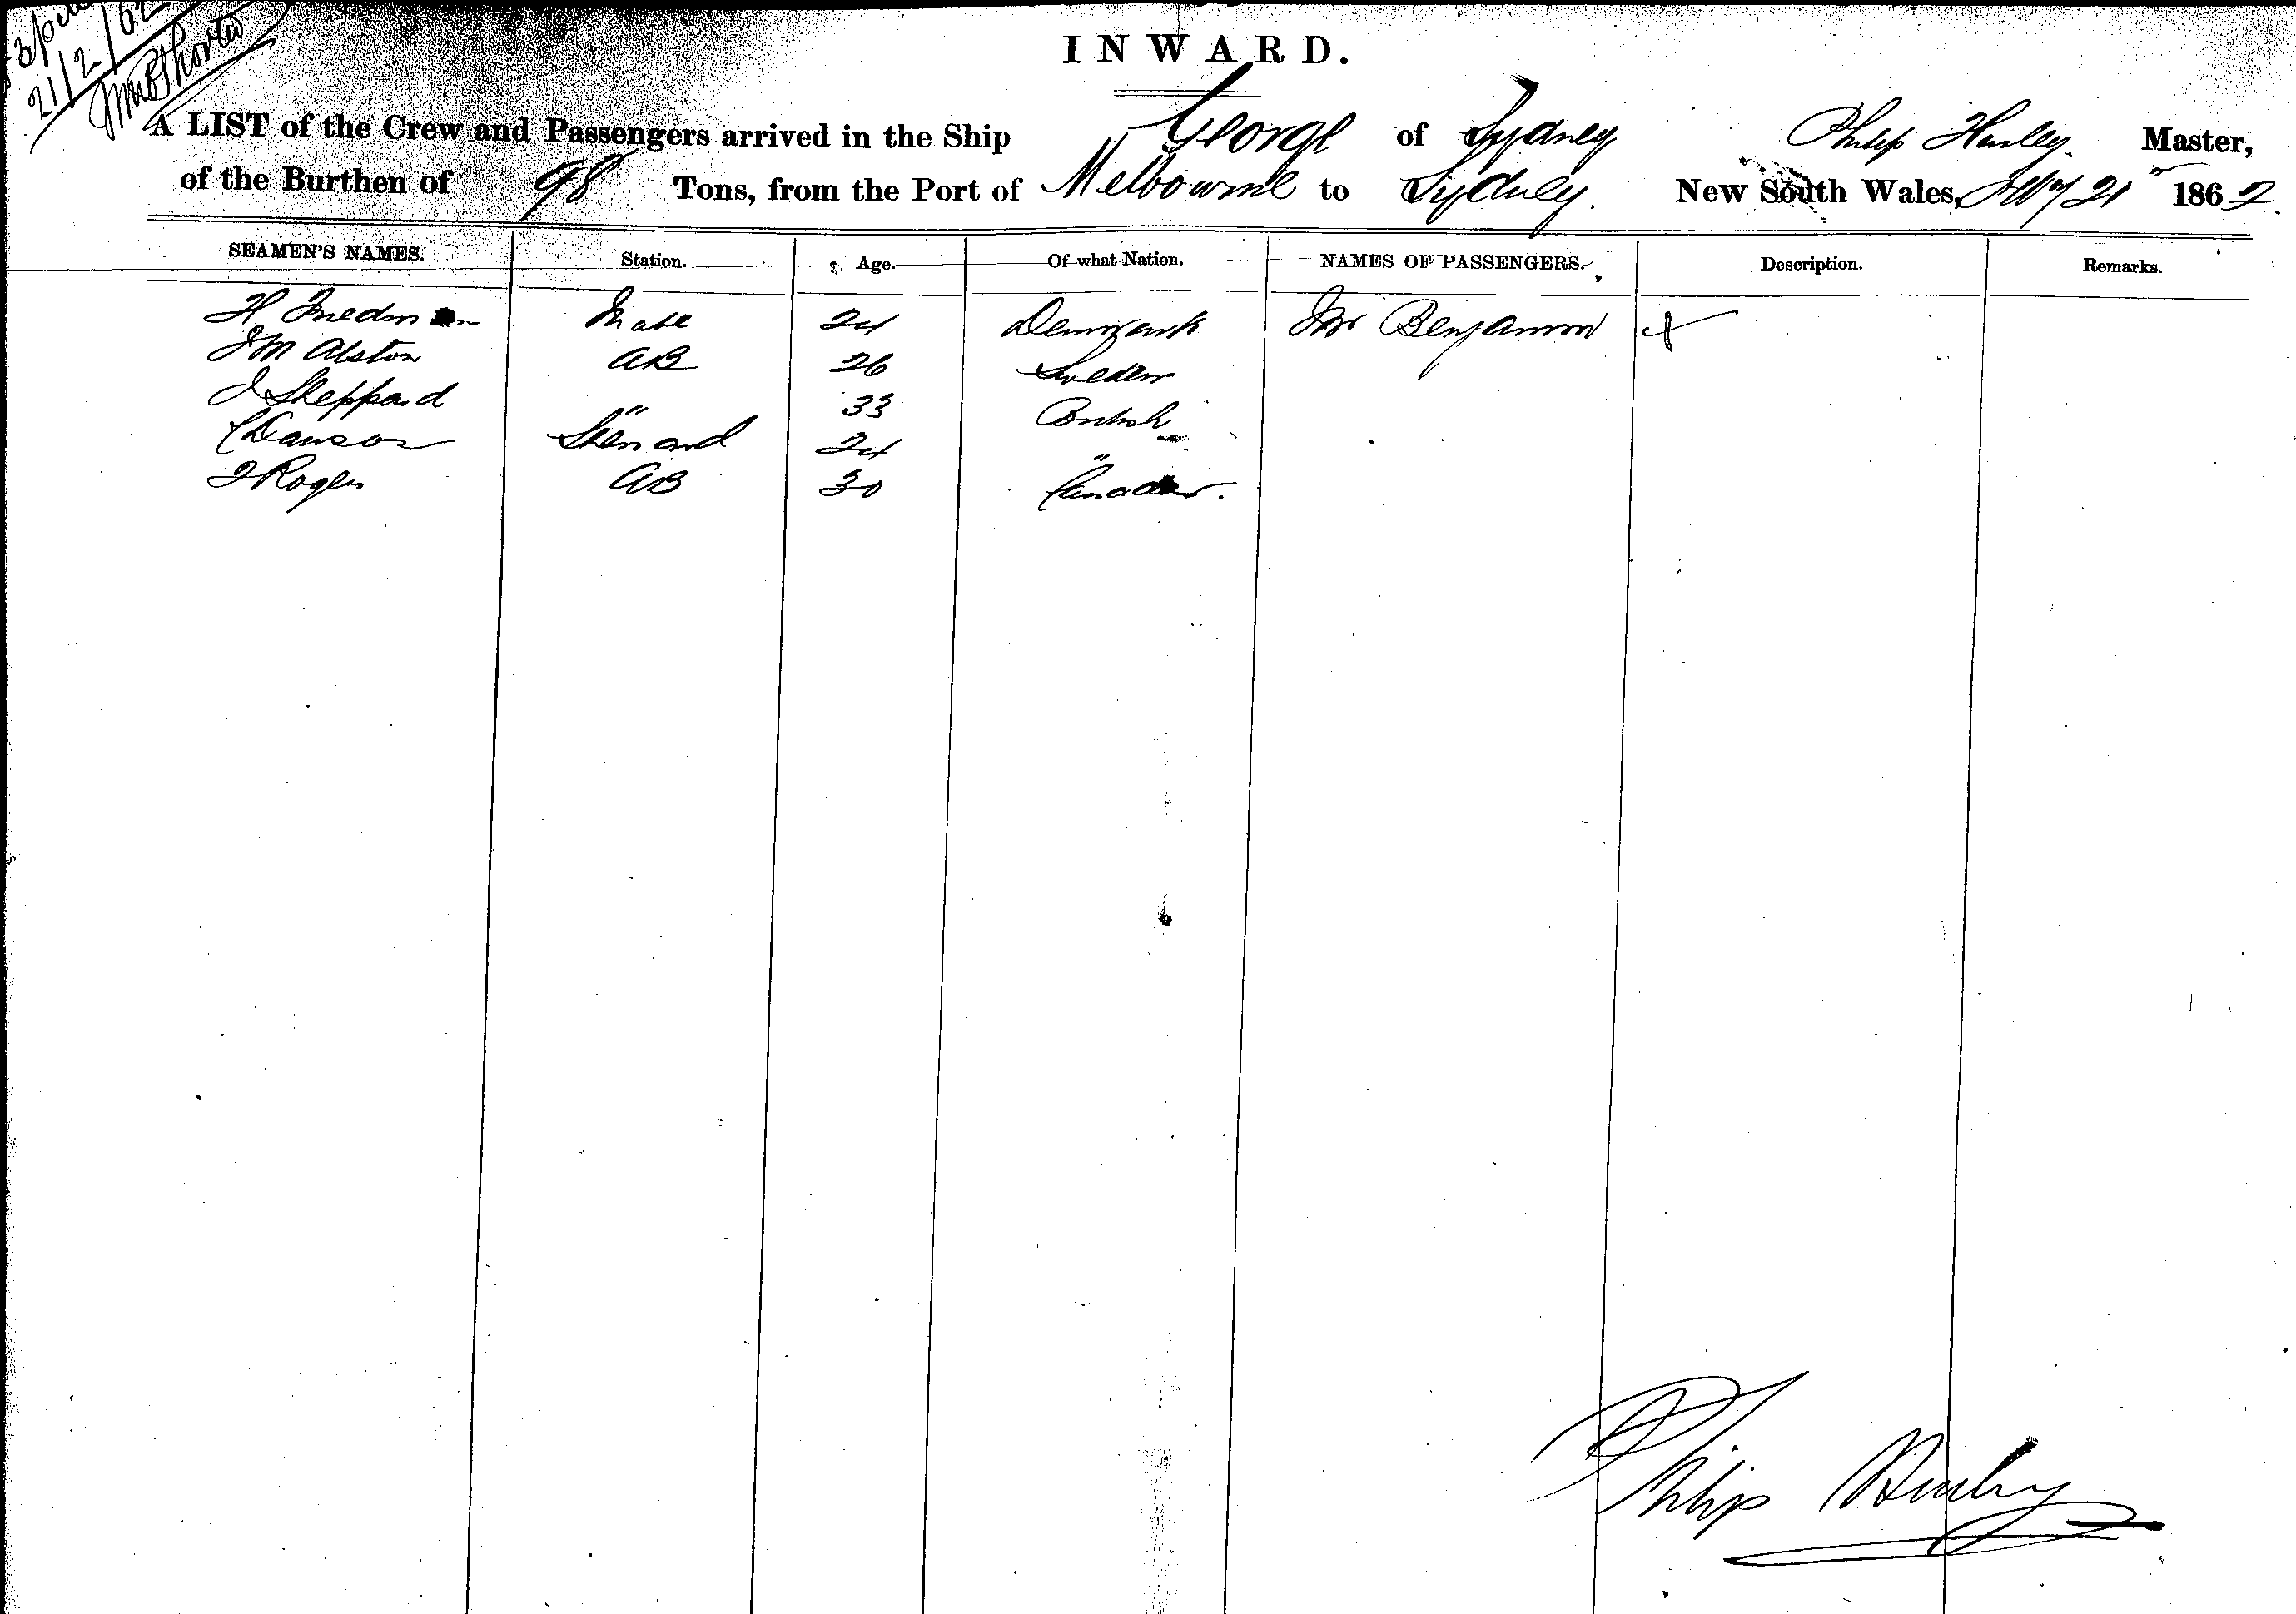 21/2/62
INWARD.
A LIST of the Crew and Passengers arrived in the Ship George of Sydney Philip Hurley. Master,
of the Burthen of 98 Tons, from the Port of Melbourne to Sydney. New South Wales, Feby 21" 1862.
SEAMEN'S NAMES. Station. Age. Of what Nation. NAMES OF PASSENGERS. Description. Remarks.
H Mate 24 Denmark Mr Benjamin
J M Alston AB 26 Sweden
J Sheppard " 33 British
C Dawson Steward 24 "
J Roger AB 30 Canada.
Philip Hurley